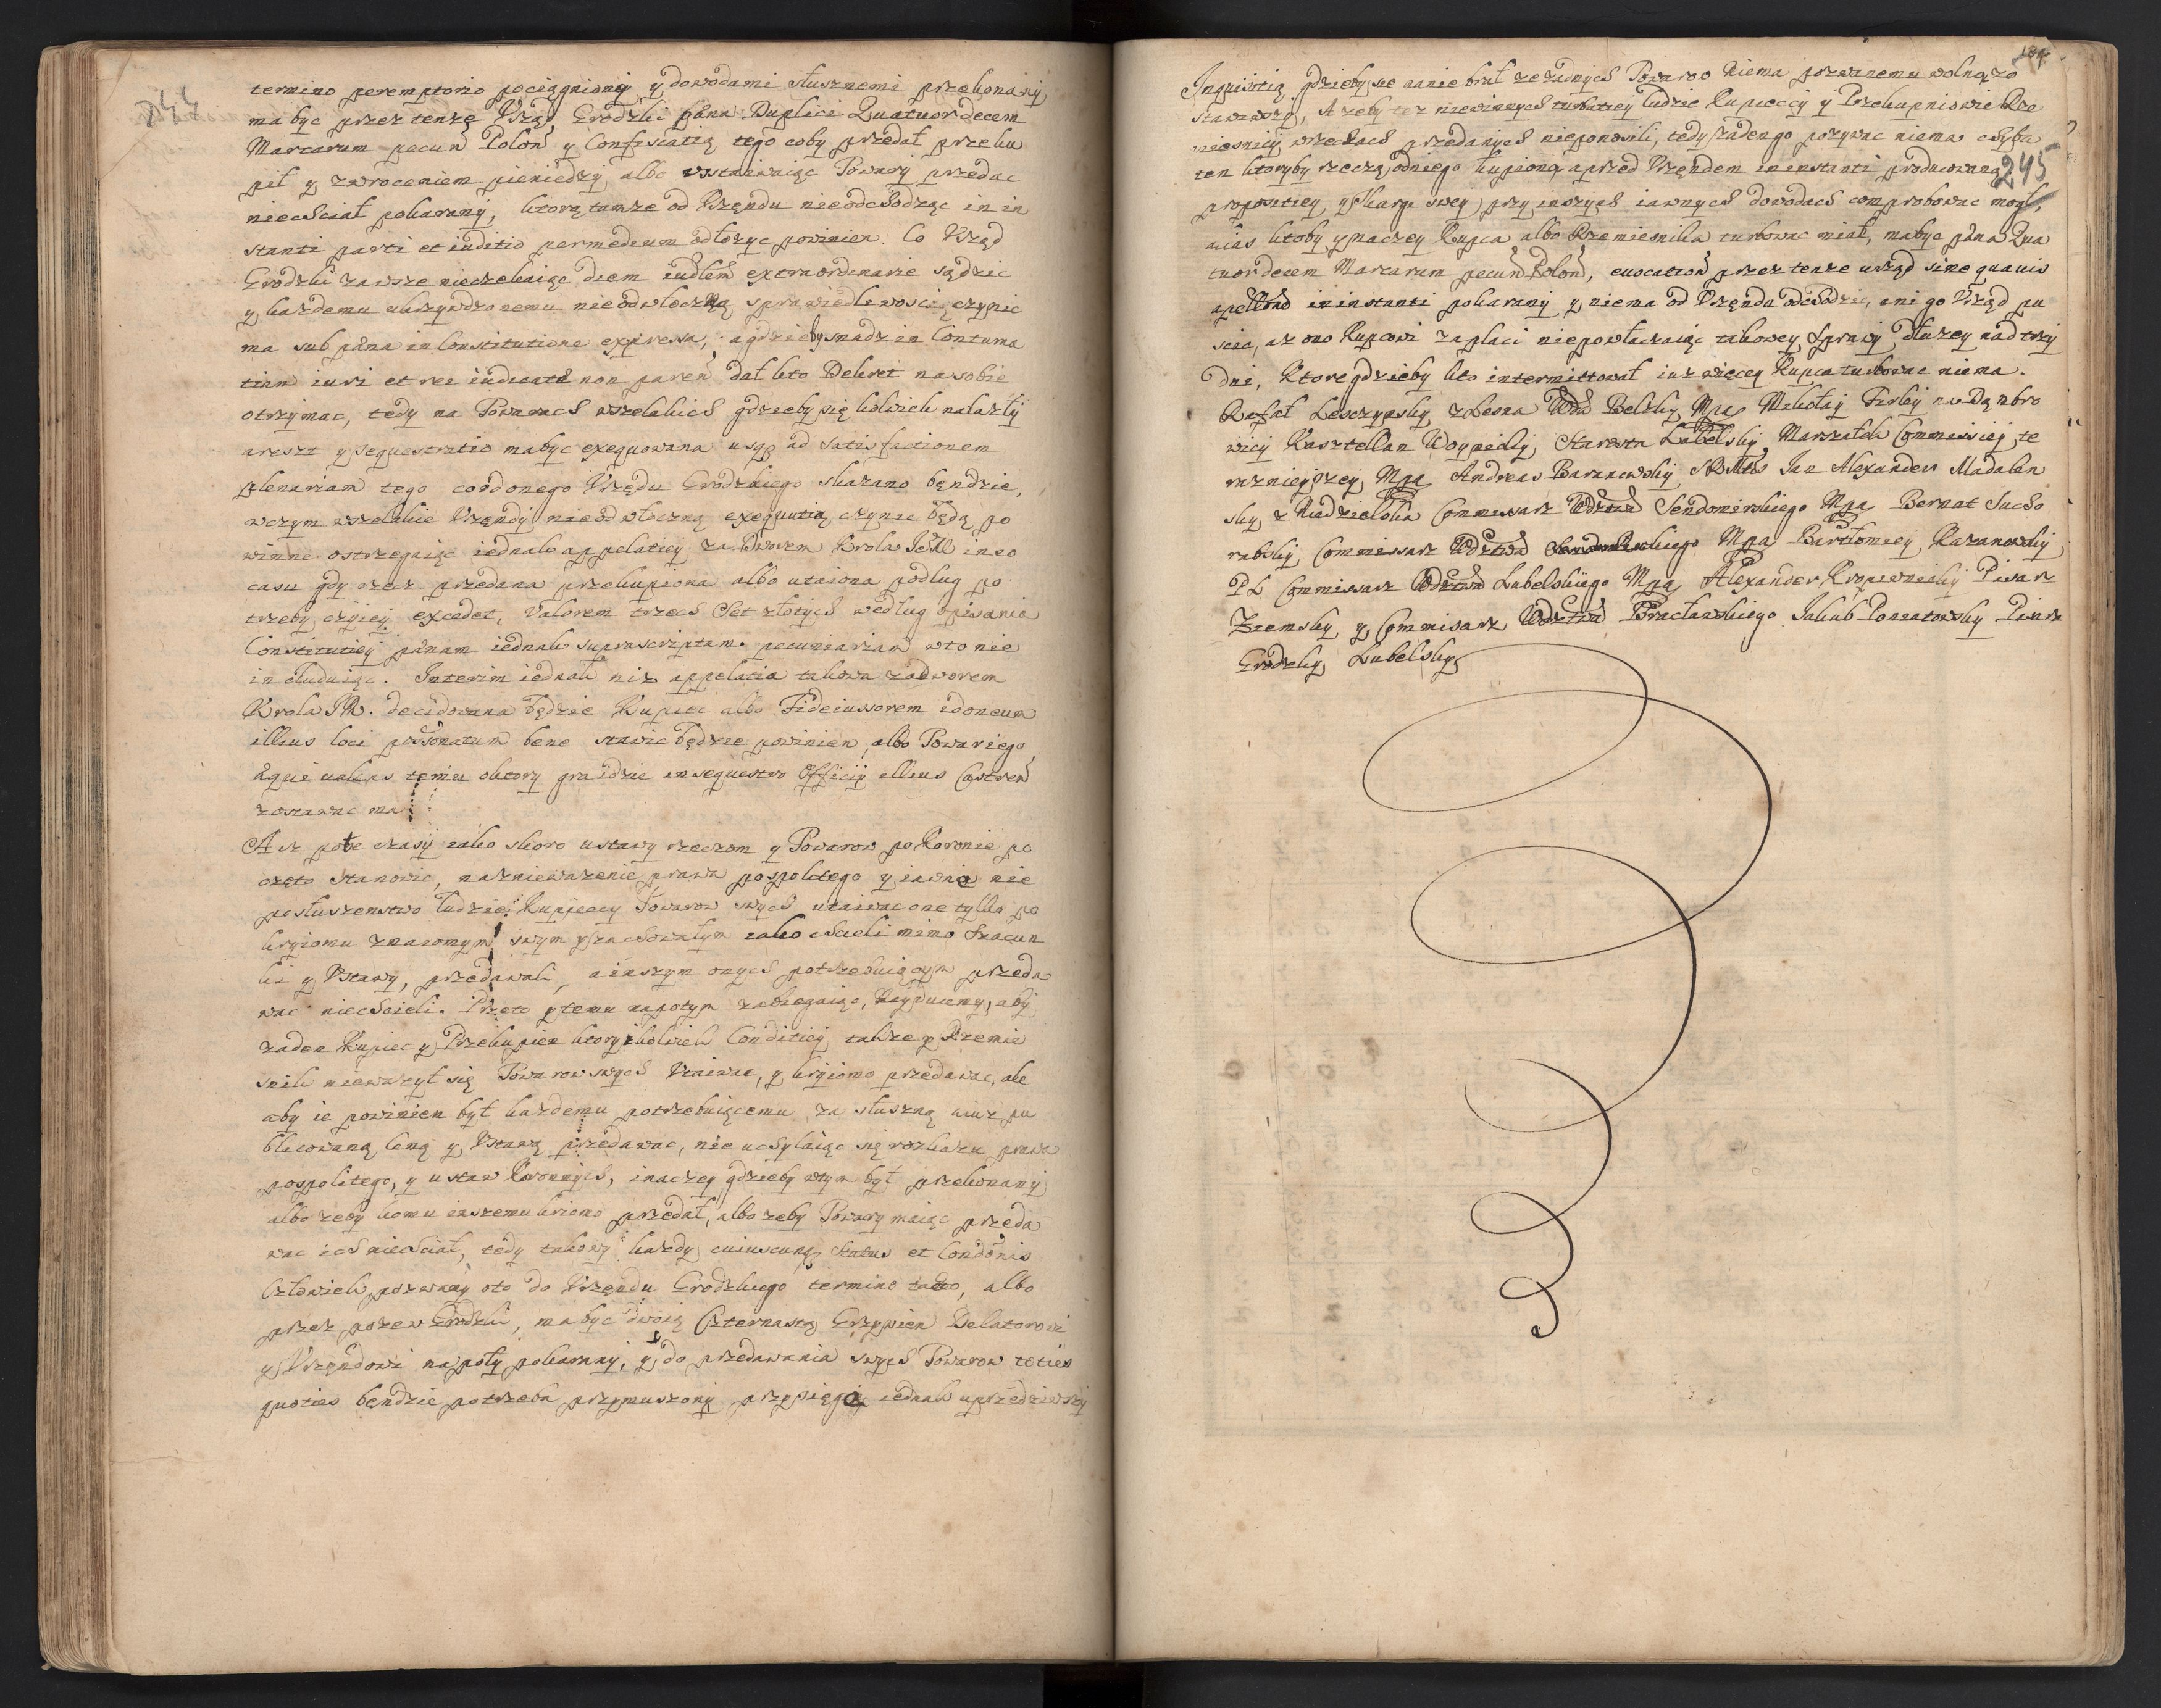 termino peremptorio pociągniony y dowodami słusznemi przekonany
ma byc przez tenze Vrząd Grodzki pæna Duplici Quatuordecem
Marcarum pecun Polon y Confiscatią tego coby przedał przeku
pił y zwroceniem pieniedzy albo wstaiwaiąc Towary przedac
niechciał pokarany, ktorą tamze od Vrzędu nieodchodząc in in
stanti parti et iuditio permedium odłozyc powinien. Co Vrząd
Grodzki zawsze nieczekaiąc diem iudlem extraordinarie sądzic
y kazdemu ukrzywdzonemu nieodwłoczną sprawiedliwosc czynic
ma sub pæna in Constitutione expressa, a gdzieby snadz in Contuma
tiam iuri et rei iudicatæ non paren dał kto Dekret na sobie
otrzymac, tedy na Towarach wszelakich gdzieby się kolwiek nalazły
areszt y sequestratio ma byc exequowana usq ad satisfactionem
plenariam tego co od onego Vrzędu Grodzkiego skazano będzie,
w czym wszelakie Vrzędy nieodwłoczną exequutią czynic będą po
winne ostrzegaiąc iednak appelatiey za Dworem Krola JeM in eo
casu gdy rzecz przedana przekupiona albo utaiona podług po
trzeby czyiey excedet, Valorem trzech Set złotych według opisania
Constitutiey pænam iednak suprascriptam pecuniariam w to nie
includuiąc. Interim iednak niz appelatia takowa za dworem
Krola JM. decidowana będzie Kupiec albo Fideiussorem idoneum
illius loci possonatum bene stawic będzie powinien, albo Towar iego
æquivalens temu o ktory gra idzie in sequestro Officij illius Castren
zostawac ma
A iz po te czasy iako skoro ustawy rzeczom y Towarow po Koronie po
częto Stanowic, na zniewazenie prawa pospolitego y iawne nie
posłuszenstwo ludzie Kupieccy Towarow swych utaiwac one tylko po
kryiomu znaiomym swym y zachowałym iako chcieli mimo Szacun
ki y Vstawy, przedawali, a inszym onych potrzebuiącym przeda
wac niechcieli. Przeto y temu napotym zabiegaiąc, Nayduiemy, aby
zaden Kupiec y Przekupien ktorykolwiek Conditiey takze y Rzemie
snik niewazył się Towarow swych Vtaiwac, y kryiomo przedawac, ale
aby ie powinien był kazdemu potrzebuiącemu za słuszną a iuz pu
blicowaną Ceną y Vstawą przedawac, nie uchylaiąc się rozkazu prawa
pospolitego, y ustaw Koronnych, inaczey gdzieby w tym był przekonany
albo zeby komu inszemu kriomo przedał, albo zeby Towary maiąc przeda
wac ich niechciał, tedy takowy kazdy cuiuscunq Status et Condonis
Człowiek, pozwany o to do Vrzędu Grodzkiego termino tacto, albo
przez pozew Grodzki, ma byc dwoią Czternastą Grzywien Delatorowi
y Vrzędowi na poły pokarany, y do przedawania swych Towarow toties
quoties będzie potrzeba przymuszony przysięgą iednak uprzedziwszy
184
Inquisitią gdzieby sie na nie brał ze zadnych Towarow niema pozwanemu wolną zo
stawawszy, A zeby tez niewinnych turbatiey ludzie Kupieccy y Przekupniowie Rze
miesnicy w rzeczach przedanych nieponosili, tedy zadengo pozywac niema chyba
ten ktoryby rzeczą od niego kupioną a przed Vrzędem in instanti producowaną
245
propositiey, y Skargi swey przy inszych iawnych dowodach comprobowac mogł,
alias ktoby ynaczey Kupca albo Rzemiesnika turbowac miał, ma byc pæna Qua
tuordecem Marcarum pecun Polon, euocation przez tenze urząd sine quauis
apellõne in instanti pokarany y niema od Vrzędu odchodzic, ani go Vrząd pu
scic, az ono Kupcowi zapłaci niepowłaczaiąc takowey Sprawy dłuzey nad trzy
dni, Ktore gdzieby kto intermittował iuz więcey Kupca turbowac niema.
Rafał Lesczynsky z Lesna Wda Belsky Mpa Mikołay Firley na Dąmbro
wicy Kasztellan Woynicky Starosta Lubelsky Marszałek Commissiey te
raznieyszey Mpa Andreas Barzowsky Jan Alexander Madalen
sky z Niedzielska Commissarz Wdztwa Sendomirskiego Mpa Bernat Sucho
rabsky Commissarz Wdztwa Mpa Bartłomiey Kazanowsky
PL Commissarz Wdztwa Lubelskiego Mpa Alexander Kropiwnicky Pisarz
Zzemsky y Commisarz Wdztwa Bracławskiego Jakub Poniatowsky Pisarz
Grodzky Lubelsky